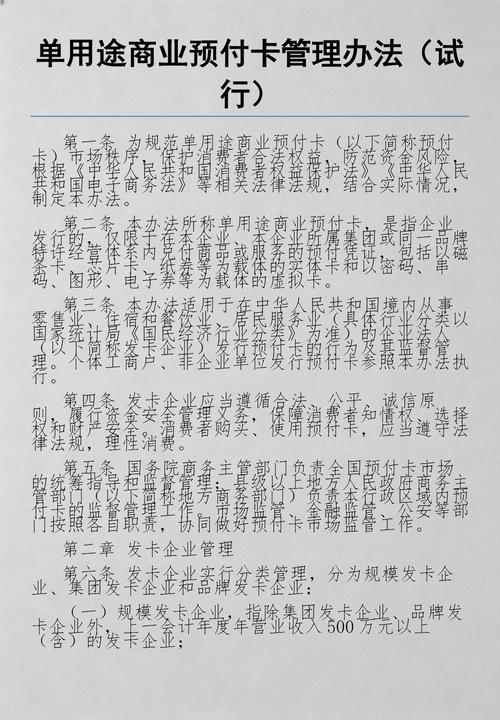 单用途商业预付卡管理办法（试
行）
第一条 为规范单用途商业预付卡（以下简称预付
卡）市场秩序，保护消费者合法权益，防范资金风险，
根据《中华人民共和国消费者权益保护法》《中华人民
共和国电子商务法》等相关法律法规，结合实际情况，
制定本办法。
第二条 本办法所称单用途商业预付卡，是指企业
发行的，仅限于在本企业、本企业所属集团或同一品牌
特许经营体系内兑付商品或服务的预付凭证，包括以磁
条卡、芯片卡、纸券等为载体的实体卡和以密码、串
码、图形、电子券等为载体的虚拟卡。
第三条 本办法适用于在中华人民共和国境内从事
零售业、住宿和餐饮业、居民服务业（具体行业分类以
国家统计局《国民经济行业分类》为准）的企业法人
（以下简称发卡企业）发行预付卡的行为及其监督管
理。个体工商户、非企业单位发行预付卡参照本办法执
行。
第四条 发卡企业应当遵循合法、公平、诚信原
则，履行资金安全管理义务，保障消费者知情权、选择
权和财产安全。消费者购买、使用预付卡，应当遵守法
律法规，理性消费。
第五条 国务院商务主管部门负责全国预付卡市场
的统筹指导和监督管理；县级以上地方人民政府商务主
管部门（以下简称地方商务部门）负责本行政区域内预
付卡的监督管理工作。市场监管、金融监管、公安等部
门按照各自职责，协同做好预付卡市场监管工作。
第二章 发卡企业管理
第六条 发卡企业实行分类管理，分为规模发卡企
业、集团发卡企业和品牌发卡企业：
（一）规模发卡企业，指除集团发卡企业、品牌发
卡企业外，上一会计年度年营业收入500万元以上
（含）的发卡企业；